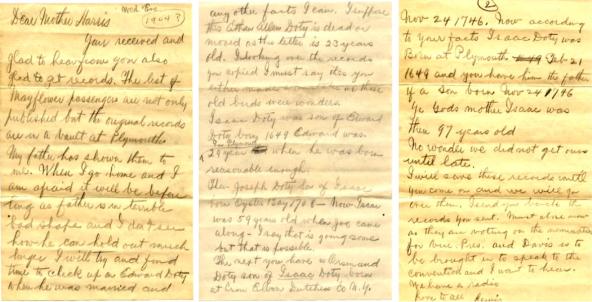 Wed Eve
Dear Mother Harris
Your received and
glad to hear from you also
glad to get records. The list of
Mayflower passengers are not only
published but the original records
are in a vault at Plymouth
My father has shown them to
me. When I go home and I
am afraid it will be before
long as father is in terrible
bad shape and I don't see
how he can hold out much
longer I will try and find
time to check up on Edward Doty
when he was married and
any other facts I can. I suppose
this Allan Doty is dead or
moved as the letter is 23 years
old. In looking over the records
you copied I must say this you
either made a as those
old birds were wonders
Isaac Doty was son of Edward
Doty born 1649 Edward was
29 year when he was born
reasonable enough.
Then Joseph Doty son of Isaac
born Oyster Bay 1708 - Now Isaac
was 59 years old when Joe came
along - I say that is going some
but that is possible
The next you have is
Doty son of Isaac Doty born
at Crum Elbow Dutchess Co N.Y.
2
Nov 24 1746. Now according
to your facts Isaac Doty was
Born at Plymouth Feb 21
1649 and you have him the father
of a Son born Nov 24 1746
Ye Gods mother Isaac was
then 97 years old
No wonder we did not get ours
until late.
I will save these records until
you come on and we will go
over them. I send you back the
records you sent. Must close now
as they are voting on the nomination
for Vice. Pres. and Davis is to
be brought in to speak to the
convention and I want to hear.
We have a radio
Love to all